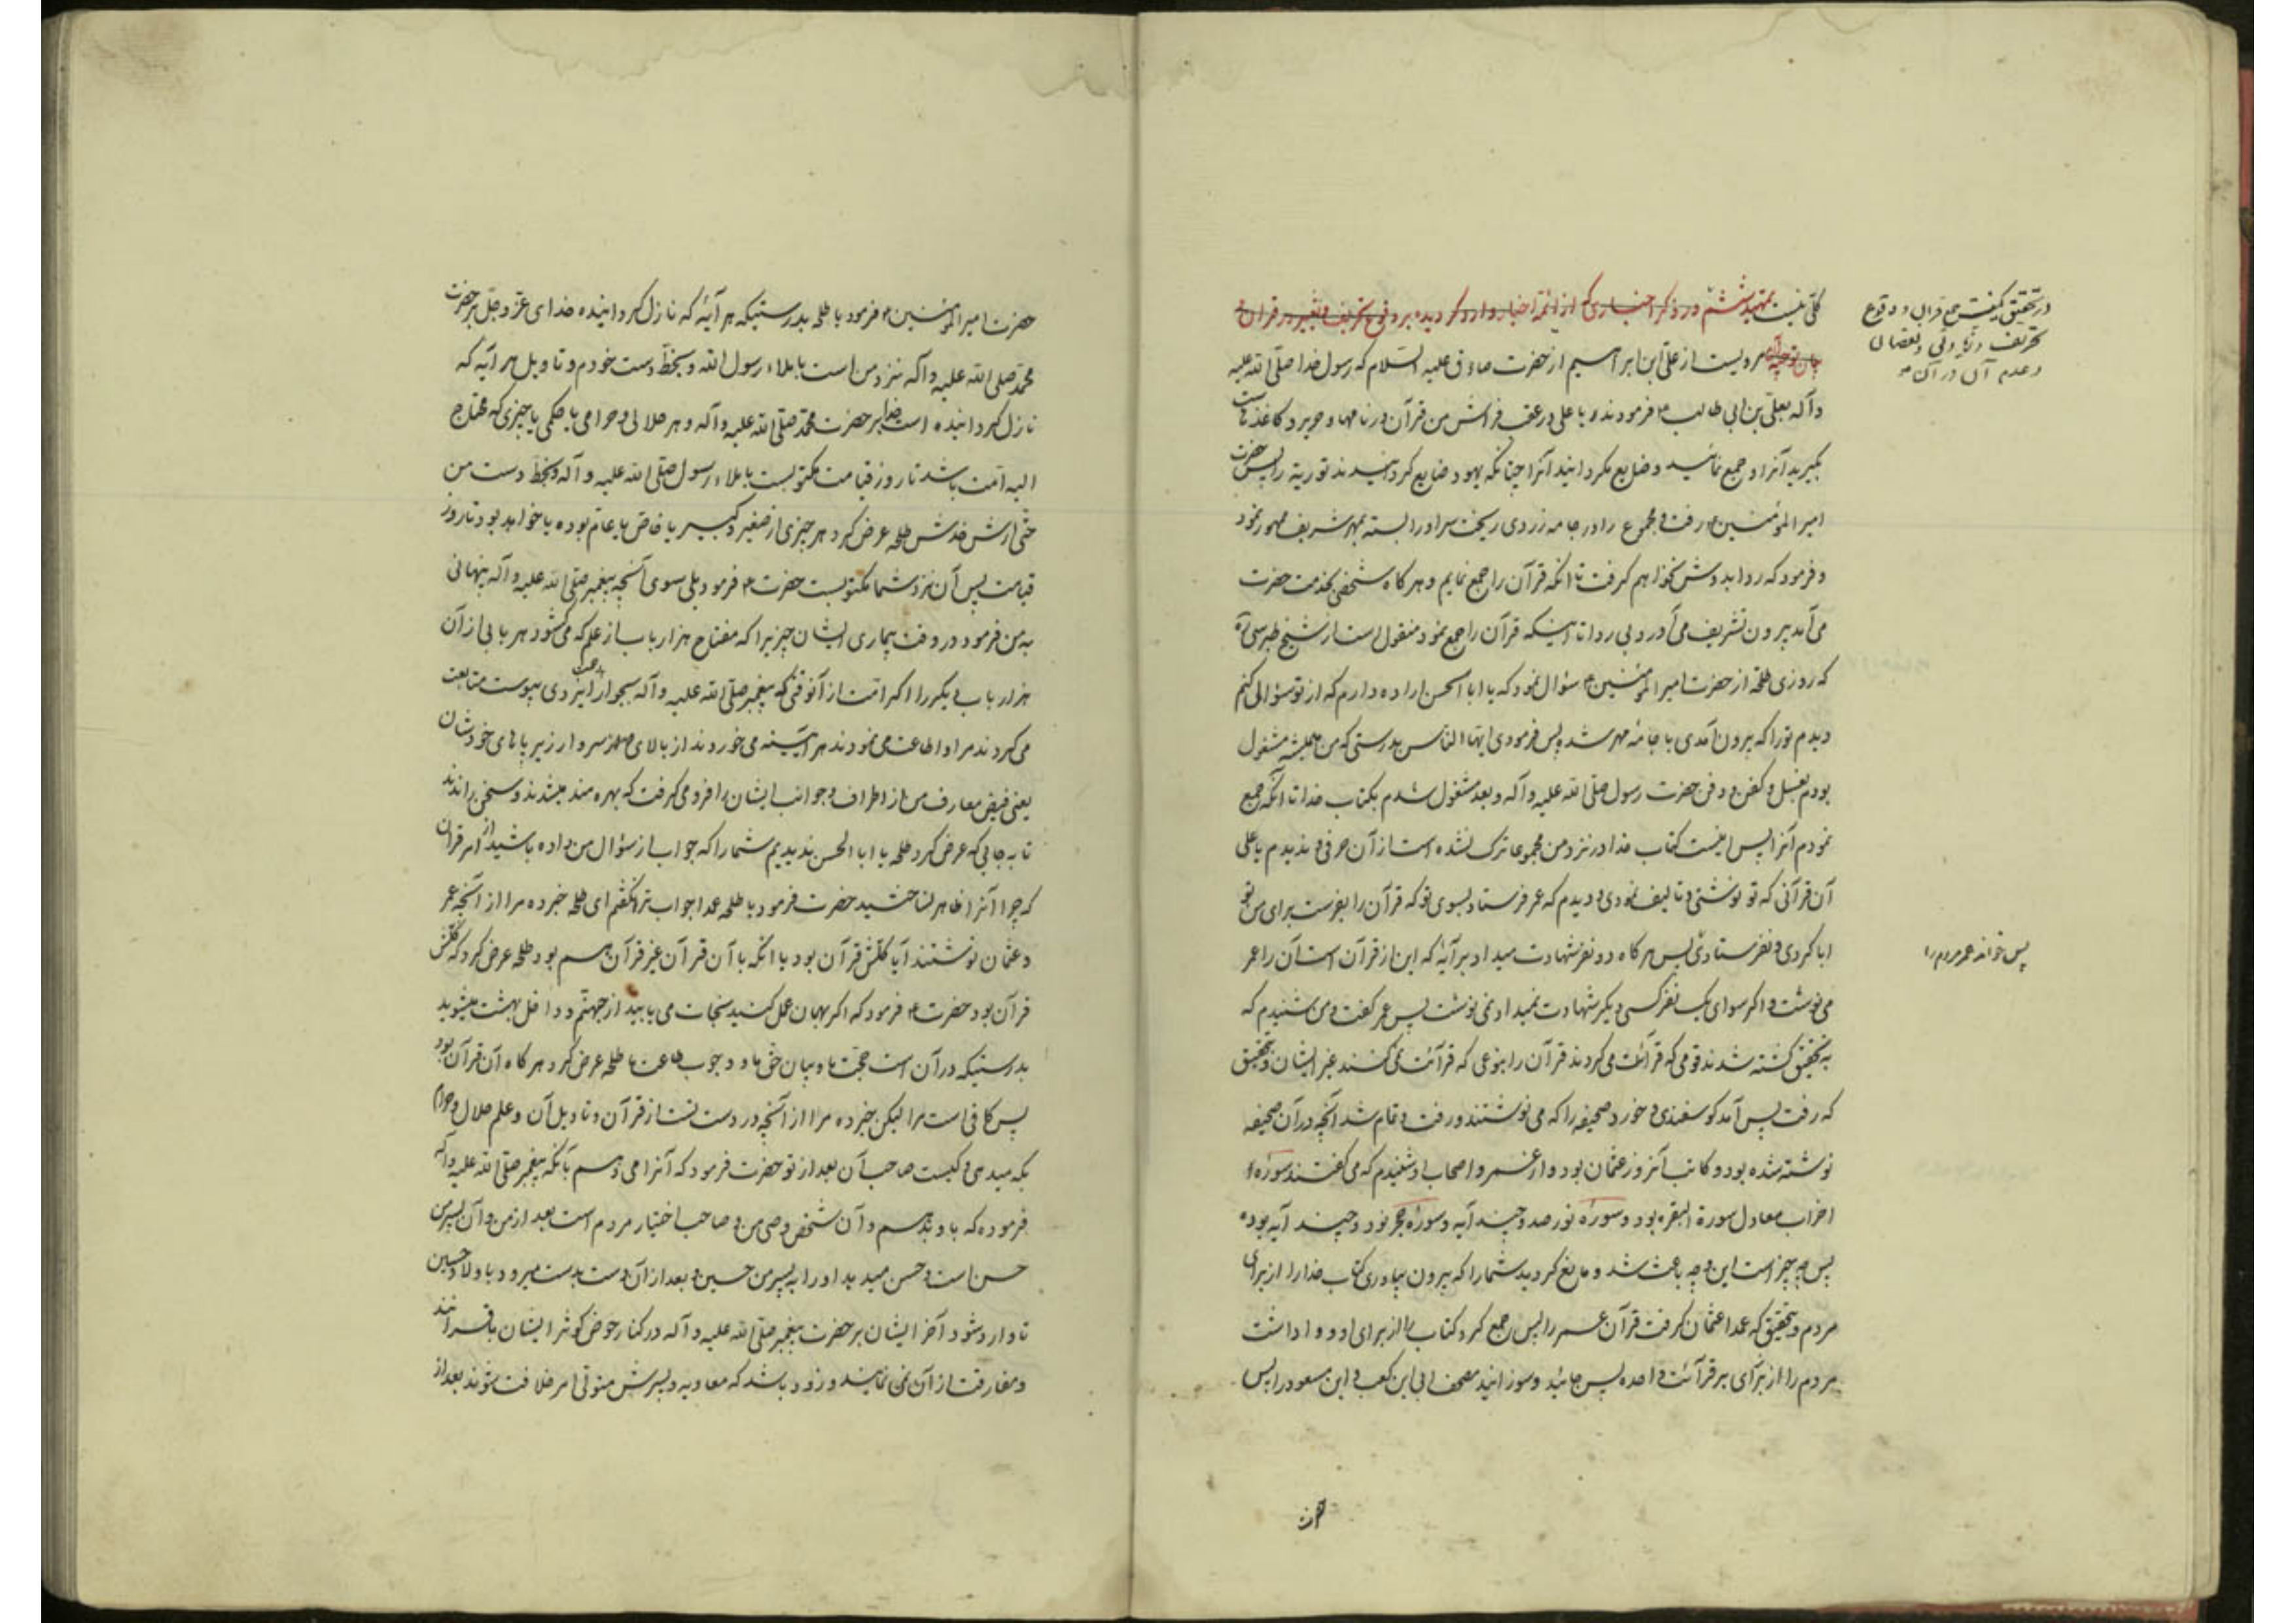 کلّی نیست تمهید ششم در ذکر اخباری که از ائمه اخبار وارد گردیده بر وقوع تحریف و تغییر در قرآن و
در تحقیق کیفیت جمع قرآن و وقوع
تحریف و زیادتی و نقصانی
و عدم آن در آن
بیان توجیه آنها مرویست از علی ابن ابراهیم از حضرت صادق علیه السّلام که رسول خدا صلّی الله علیه
وآله بعلیّ بن ابی طالب ع فرمودند و یا علی در عقب فراش من قرآن در نامها و حریر و کاغذ هاست
بگیرید آنرا و جمع نمائید و ضایع مگردانید آنرا چنانکه یهود ضایع گردانیدند توریة را پس حضرت
امیرالمؤمنین ع رفت و مجموع را در جامه زردی ریخت سر او را بسته بمهر شریف ممهور نمود
و فرمود که ردا بدوش نخواهم گرفت تا آنکه قرآن را جمع نمایم و هرکاه شخصی بخدمت حضرت
می آمد بیرون تشریف می آورد بی ردا تا اینکه قرآن را جمع نمود منقول است از شیخ طبرسی ره
که روزی طلحه از حضرت امیرالمؤمنین ع سؤال نمود که یا ابا الحسن اراده دارم که از تو سؤالی کنم
دیدم تو را که بیرون آمدی با جامهٔ مهر شده پس فرمودی ایها النّاس بدرستی که من همیشه مشغول
بودم بغسل و کفن و دفن حضرت رسول صلّی الله علیه وآله و بعد مشغول شدم بکتاب خدا تا آنکه جمع
نمودم آنرا پس اینست کتاب خدا در نزد من مجموعا ترک نشده است از آن حرفی و ندیدم یا علی
آن قرآنی که تو نوشتی و تالیف نمودی و دیدم که عمر فرستاد بسوی تو که قرآن را بفرست برای من تو
ابا کردی و نفرستادی پس هرکاه دو نفر شهادت میداد بر آیهٔ که این از قرآن است آن را عمر
پس خواند عمر مردم را
می نوشت و اکر سوای یک نفر کسی دیکر شهادت نمیداد نمی نوشت پس عمر کفت و من شنیدم که
به تحقیق کشته شدند قومی که قرآئت می کردند قرآن را بنوعی که قرآئت نمی کنند غیر ایشان و بتحقیق
که رفت پس آمد کوسفندی و خورد صحیفه را که می نوشتند و رفت و تمام شد آنچه در آن صحیفه
نوشته شده بود و کاتب آنروز عثمان بود و از عمر و اصحاب او شنیدم که می کفتند سورهٔ
احزاب معادل سورة البقره بود و سورهٔ نور صد و چند آیه و سورهٔ حجر نود و چند آیه بوده
پس چه چیز است این و چه باعث شد و مانع کردید شما را که بیرون بیاوری کتاب خدا را از برای
مردم و بتحقیق که عمدا عثمان کرفت قرآن عمر را پس جمع کرد کتاب را از برای او و واداشت
مردم را از برای بر قرآئت واحده پس و سوزانید مصحف ابی ابن کعب و ابن مسعود را پس
حضرت
حضرت امیرالمؤمنین ع فرمود یا طلحه بدرستیکه هر آیهٔ که نازل کردانیده خدای عزّ وجلّ بر حضرت
محمّد صلّی الله علیه وآله نزد من است باملاء رسول الله و بخطّ دست خودم و تاویل هر آیه که
نازل کردانیده است خدا بر حضرت محمّد صلّی الله علیه وآله و هر حلالی و حرامی یا حکمی یا چیزی که محتاج
الیه امّت باشد تا روز قیامت مکتوبست باملاء رسول صلّی الله علیه و آله و بخطّ دست من
حتّی ارش خدش طلحه عرض کرد هر چیزی از صغیر و کبیر یا خاصّ یا عامّ بوده یا خواهد بود تا روز
قیامت پس آن نزد شما مکتوبست حضرت ع فرمود بلی سوی آنچه پیغمبر صلّی الله علیه وآله پنهانی
به من فرمود در وقت بیماری ایشان چیزیرا که مفتاح هزار باب از علم که می کشود هر بابی از آن
هزار باب دیکر را اکر امّت از آنوقتی که پیغمبر صلّی الله علیه وآله بجوار رحمت ایزدی پیوست متابعت
می کردند مرا و اطاعت می نمودند هر آینه می خوردند از بالای سر و از زیر پاهای خودشان
یعنی فیض معارف من از اطراف و جوانب ایشان را فرو می کرفت که بهره مند میشدند و سخن راندند
تا به جایی که عرض کرد طلحه یا ابا الحسن ندیدیم شما را که جواب از سؤال من داده باشید از امر قرآن
که چرا آنرا ظاهر نساختید حضرت فرمود یا طلحه عمدا جواب ترا نکفتم ای طلحه خبر ده مرا از آنچه عمر
و عثمان نوشتند آیا کلّش قرآن بود یا آنکه با آن قرآن غیر قرآن هم بود طلحه عرض کرد که کلّش
قرآن بود حضرت ع فرمود که اکر بهمان عمل کنید نجات می یابید از جهنّم و داخل بهشت میشوید
بدرستیکه در آن است حجّت ما و بیان حق ما و وجوب طاعت ما طلحه عرض کرد هر کاه آن قرآن بود
پس کافی است مرا لیکن خبر ده مرا از آنچه در دست تست از قرآن و تاویل آن و علم حلال و حرام
بکه میدهی و کیست صاحب آن بعد از تو حضرت فرمود که آنرا می دهم بآنکه پیغمبر صلّی الله علیه وآله
فرموده که باو بدهم و آن شخص وصی من و صاحب اختیار مردم است بعد از من و آن پسر من
حسن است و حسن میدهد او را به پسر من حسین و بعد از آن دست بدست میرود باولاد حسین
تا وارد شود آخر ایشان بر حضرت پیغمبر صلّی الله علیه وآله در کنار حوض کوثر ایشان با قرآنند
و مفارقت از آن نمی نمایند و زود باشد که معاویه و پسرش متولّی امر خلافت شوند بعد از